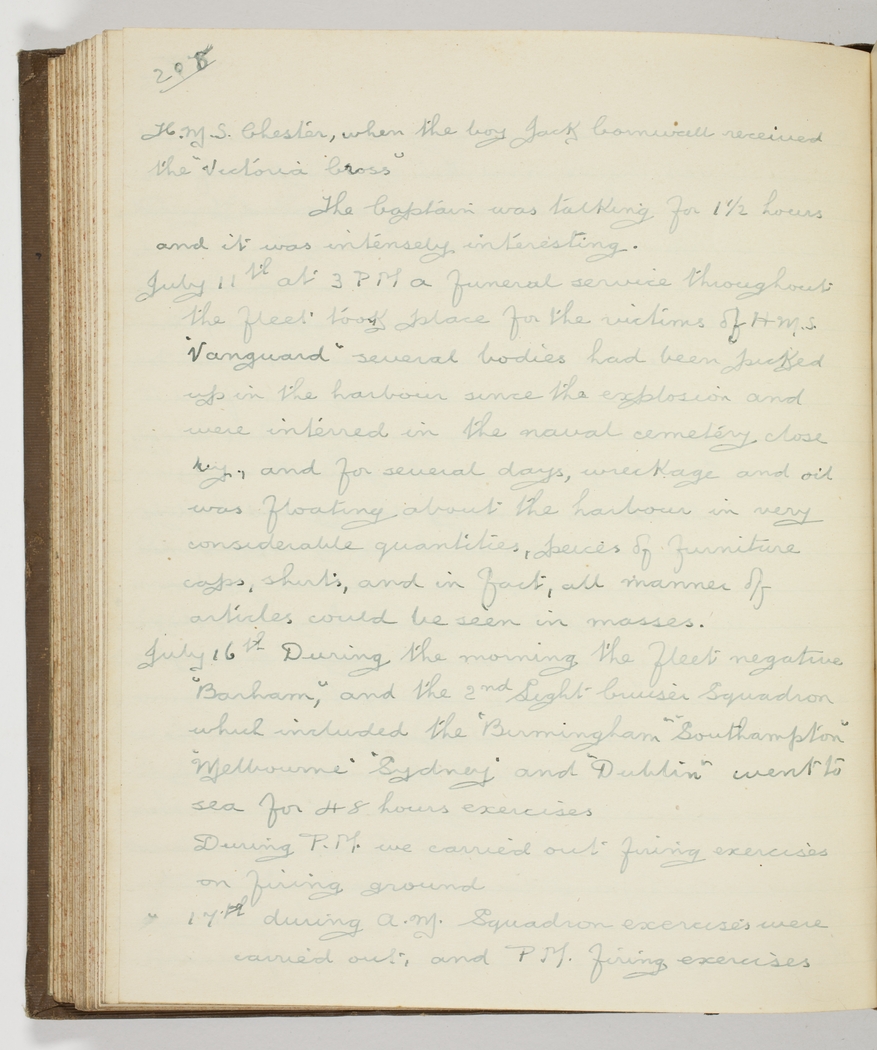 208
H.M.S. Chester, when the boy Jack Cornwall received
the "Victoria Cross"
The Captain was talking for 1 1/2 hours
and it was intensely interesting.
July 11th at 3 PM a funeral service throughout
the fleet took place for the victims of H.M.S.
"Vanguard" several bodies had been picked
up in the harbour since the explosion and
were interred in the naval cemetery close
by, and for several days, wreckage and oil
was floating about the harbour in very
considerable quantities, peices of furniture
caps, shirts, and in fact, all manner of
articles could be seen in masses.
July 16th During the morning the fleet negative
"Barham", and the 2nd Light Cruiser Squadron
which included the "Birmingham" "Southampton"
"Melbourne" "Sydney" and "Dublin" went to
sea for 48 hours exercises
During P.M. we carried out firing exercises
on firing ground
" 17th during A.M. Squadron exercises were
carried out, and P.M. firing exercises